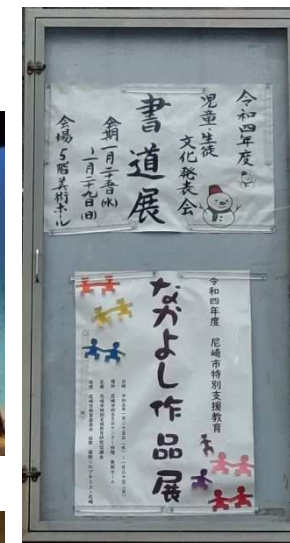 令和四年度
児童生徒
文化発表会
書道展
会期 一月二十五日(水)
～一月二十九日(日)
会場 5階美術ホール
令和四年度 尼崎市特別支援教育
なかよし作品展